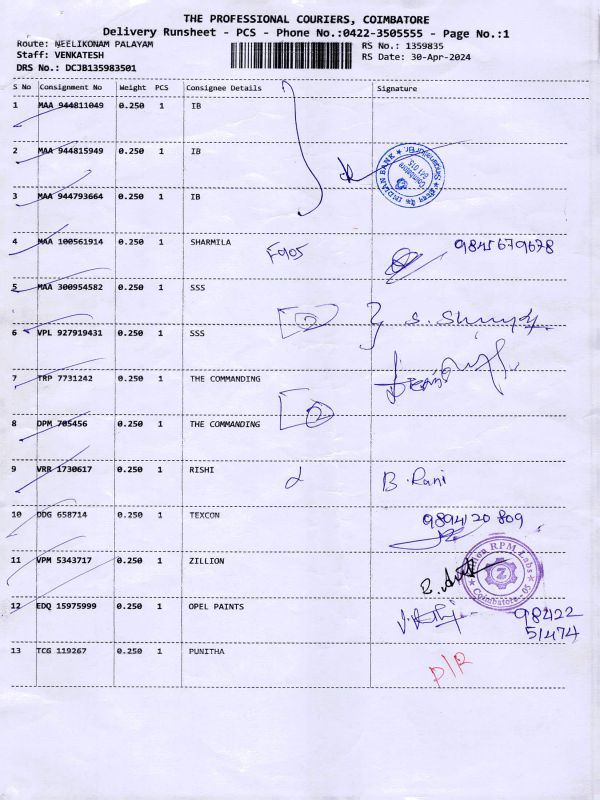 THE PROFESSIONAL COURIERS, COIMBATORE
Delivery Runsheet - PCS - Phone No.:0422-3505555 - Page No.:1
Route: NEELIKONAM PALAYAM RS No.: 1359835
Staff: VENKATESH RS Date: 30-Apr-2024
DRS No.: DCJB135983501
S No Consignment No Weight PCS Consignee Details Signature
1 MAA 944811049 0.250 1 IB
2 MAA 944815949 0.250 1 IB
INDIAN BANK
Coimbatore
641 015
3 MAA 944793664 0.250 1 IB
4 MAA 100561914 0.250 1 SHARMILA F905 9841679678
5 MAA 300954582 0.250 1 SSS
2
6 VPL 927919431 0.250 1 SSS
7 TRP 7731242 0.250 1 THE COMMANDING
2
8 DPM 705456 0.250 1 THE COMMANDING
9 VRR 1730617 0.250 1 RISHI B. Rani
10 DDG 658714 0.250 1 TEXCON 9894120 809
11 VPM 5343717 0.250 1 ZILLION
RPM Labs
Z
Coimbatore - 05
12 EDQ 15975999 0.250 1 OPEL PAINTS 98422
51474
13 TCG 119267 0.250 1 PUNITHA P/R